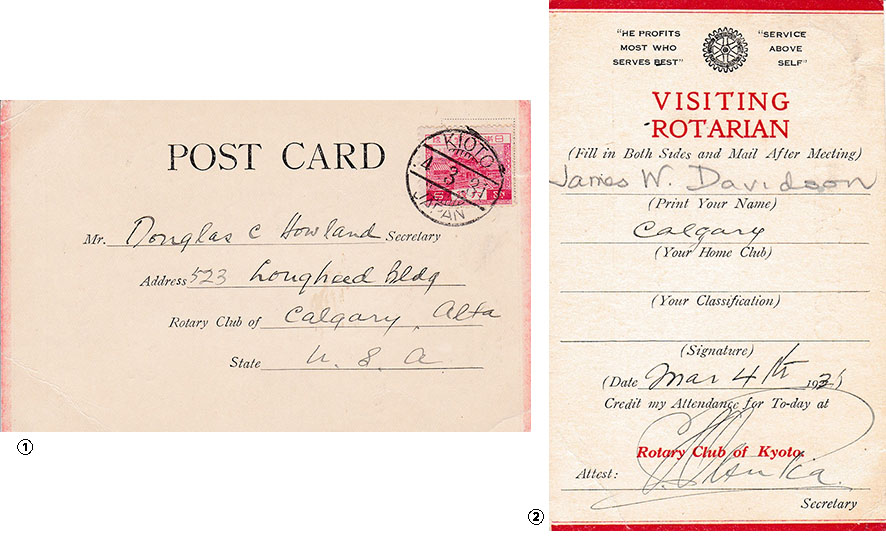 POST CARD
KIOTO
4 3 31
JAPAN
Mr. Douglas C Howland Secretary
Address 523 Lougheed Bldg
Rotary Club of Calgary, Alta
State U. S. A
①
"HE PROFITS
MOST WHO
SERVES BEST"
"SERVICE
ABOVE
SELF"
VISITING
ROTARIAN
(Fill in Both Sides and Mail After Meeting)
James W. Davidson
(Print Your Name)
Calgary
(Your Home Club)
(Your Classification)
(Signature)
(Date Mar 4th 1931)
Credit my Attendance for To-day at
Rotary Club of Kyoto.
Attest:
Secretary
②